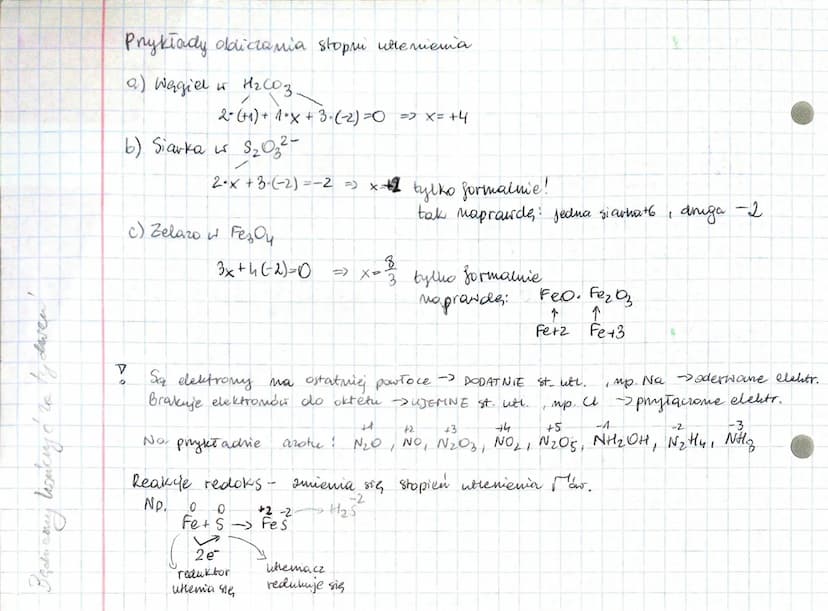 Przykłady obliczania stopni utlenienia
a) Węgiel w H₂CO₃
2·(+1) + 1·x + 3·(-2) = 0 ⇒ x = +4
b) Siarka w S₂O₃²⁻
2·x + 3·(-2) = -2 ⇒ x = +2 tylko formalnie!
tak naprawdę: jedna siarka +6, druga -2
c) Żelazo w Fe₃O₄
3x + 4(-2) = 0 ⇒ x = 8/3 tylko formalnie
naprawdę: FeO · Fe₂O₃
↑ ↑
Fe+2 Fe+3
! Są elektrony na ostatniej powłoce → DODATNIE st. utl., np. Na → oderwane elektr.
Brakuje elektronów do oktetu → UJEMNE st. utl., np. Cl → przyłączone elektr.
+1 +2 +3 +4 +5 -1 -2 -3
Na przykładzie azotu: N₂O, NO, N₂O₃, NO₂, N₂O₅, NH₂OH, N₂H₄, NH₃
Reakcje redoks - zmienia się stopień utlenienia
0 0 +2 -2 -2
Np. Fe + S → FeS → H₂S
2e⁻
reduktor utleniacz
utlenia się redukuje się